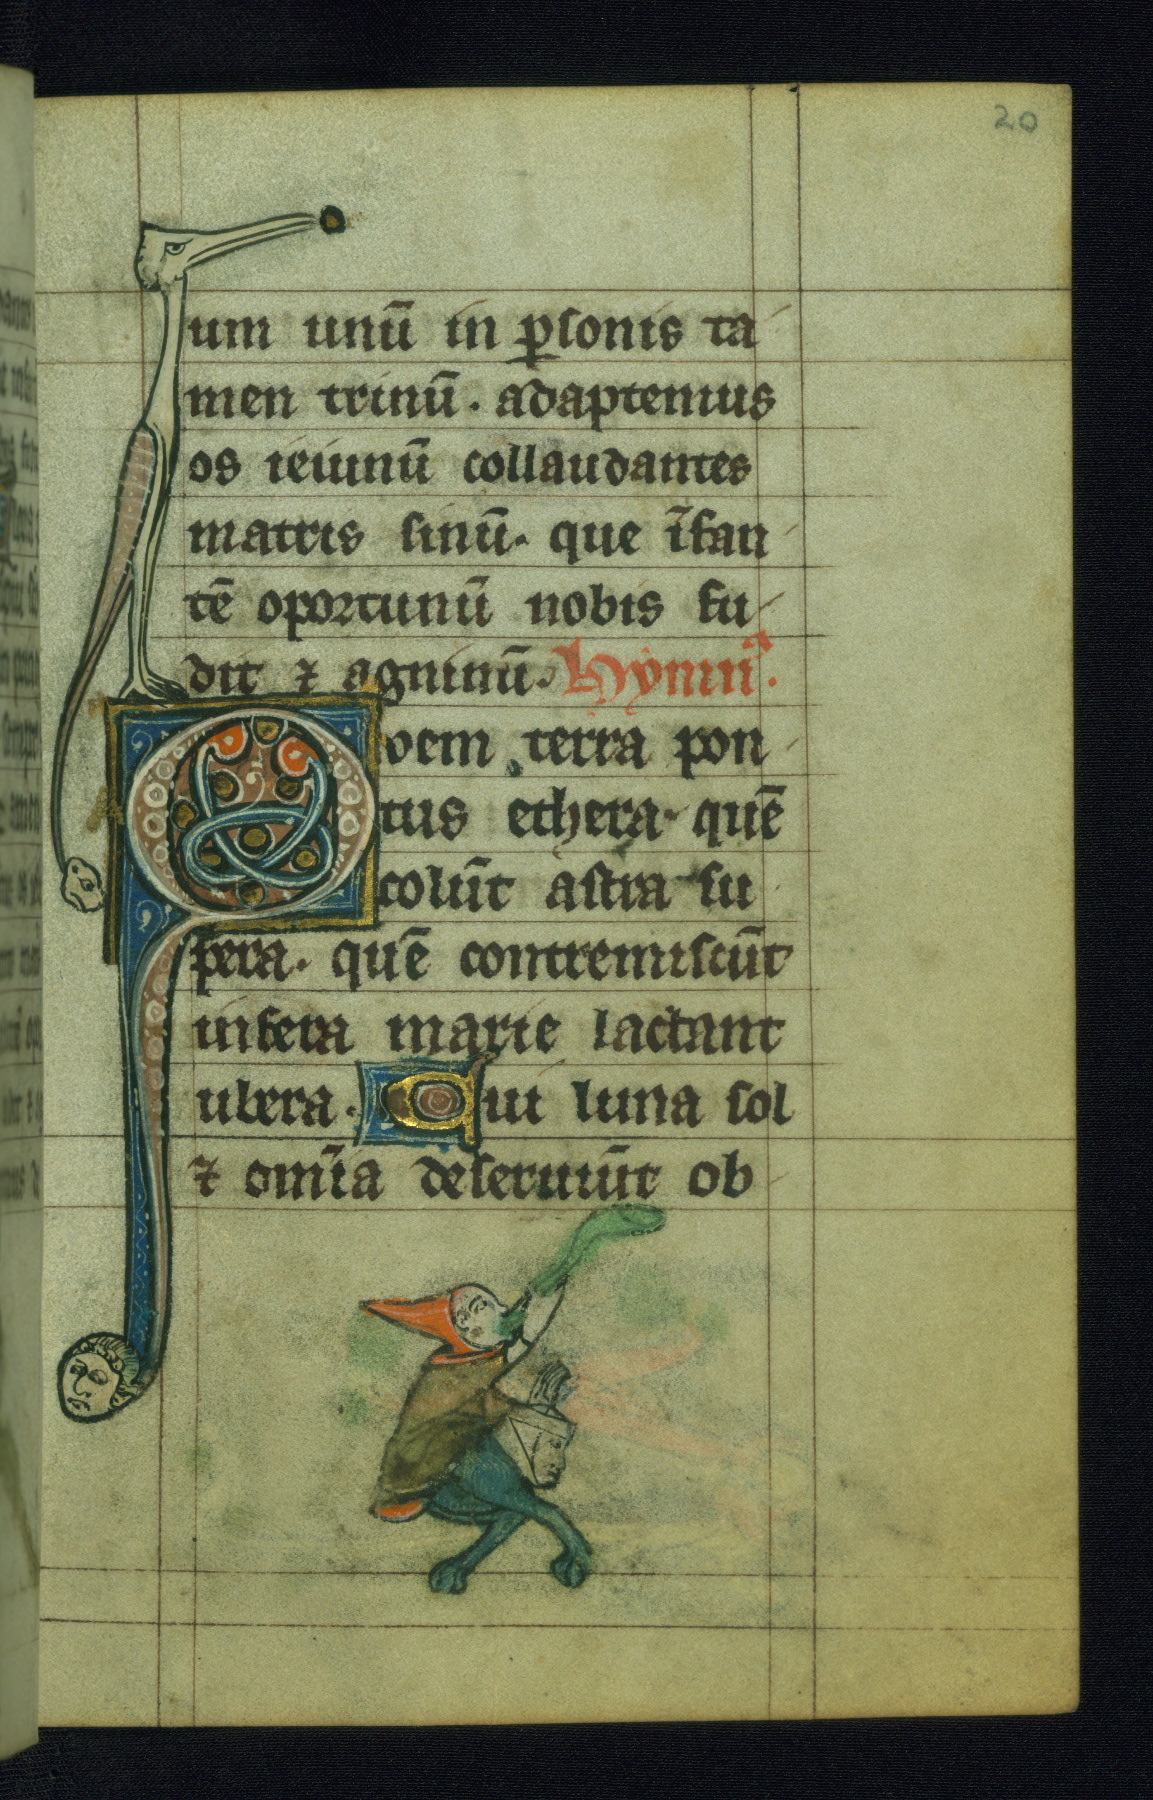 20
um unū in ꝑsonis ta
men trinū. adaptemus
os ieiunū collaudantes
matris sinū. que īfan
tē oportunū nobis fu
dit ⁊ agninū. Hymnꝰ.
Quem terra pon
tus ethera. quē
colūt astra su
pera. quē contremiscūt
infera marie lactant
ubera. Cui luna sol
⁊ om̄ia deseruiūt ob